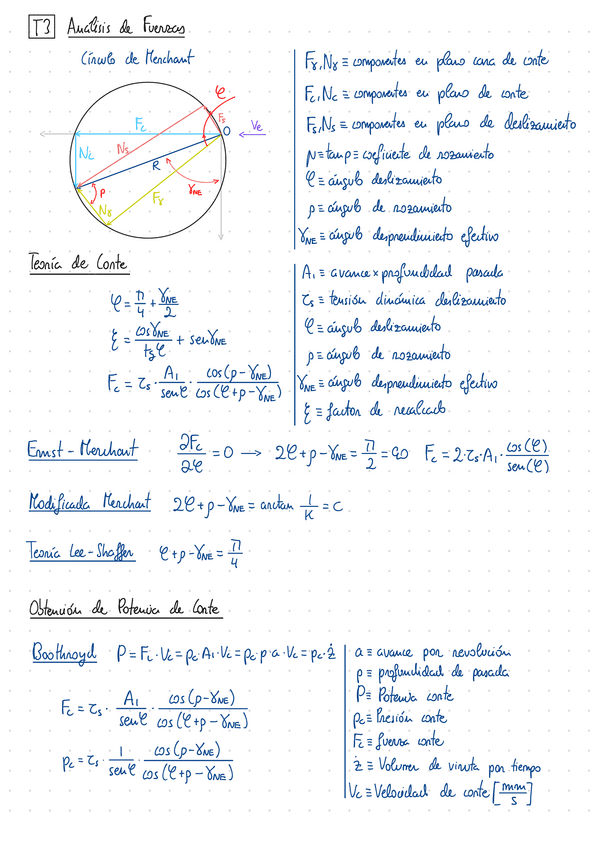 T3 Análisis de Fuerzas
Círculo de Merchant
φ
Fc
Fs
O
Ve
Nc
Ns
R
ρ
Fγ
γNE
Nγ
Fγ, Nγ ≡ componentes en plano cara de corte
Fc, Nc ≡ componentes en plano de corte
Fs, Ns ≡ componentes en plano de deslizamiento
μ ≡ tan ρ ≡ coeficiente de rozamiento
φ ≡ ángulo deslizamiento
ρ ≡ ángulo de rozamiento
γNE ≡ ángulo desprendimiento efectivo
Teoría de Corte
φ = π/4 + γNE/2
ξ = cos γNE / tg φ + sen γNE
Fc = τs · A1/sen φ · cos(ρ - γNE)/cos(φ + ρ - γNE)
A1 ≡ avance × profundidad pasada
τs ≡ tensión dinámica deslizamiento
φ ≡ ángulo deslizamiento
ρ ≡ ángulo de rozamiento
γNE ≡ ángulo desprendimiento efectivo
ξ ≡ factor de recalcado
Ernst - Merchant ∂Fc/∂φ = 0 → 2φ + ρ - γNE = π/2 = 90 Fc = 2·τs·A1· cos(φ)/sen(φ)
Modificada Merchant 2φ + ρ - γNE = arctan 1/K = C
Teoría Lee-Shaffer φ + ρ - γNE = π/4
Obtención de Potencia de Corte
Boothroyd P = Fc·Vc = pc·A1·Vc = pc·p·a·Vc = pc·ż
Fc = τs · A1/sen φ · cos(ρ - γNE)/cos(φ + ρ - γNE)
pc = τs · 1/sen φ · cos(ρ - γNE)/cos(φ + ρ - γNE)
a ≡ avance por revolución
p ≡ profundidad de pasada
P ≡ Potencia corte
pc ≡ Presión corte
Fc ≡ fuerza corte
ż ≡ Volumen de viruta por tiempo
Vc ≡ Velocidad de corte [mm/s]